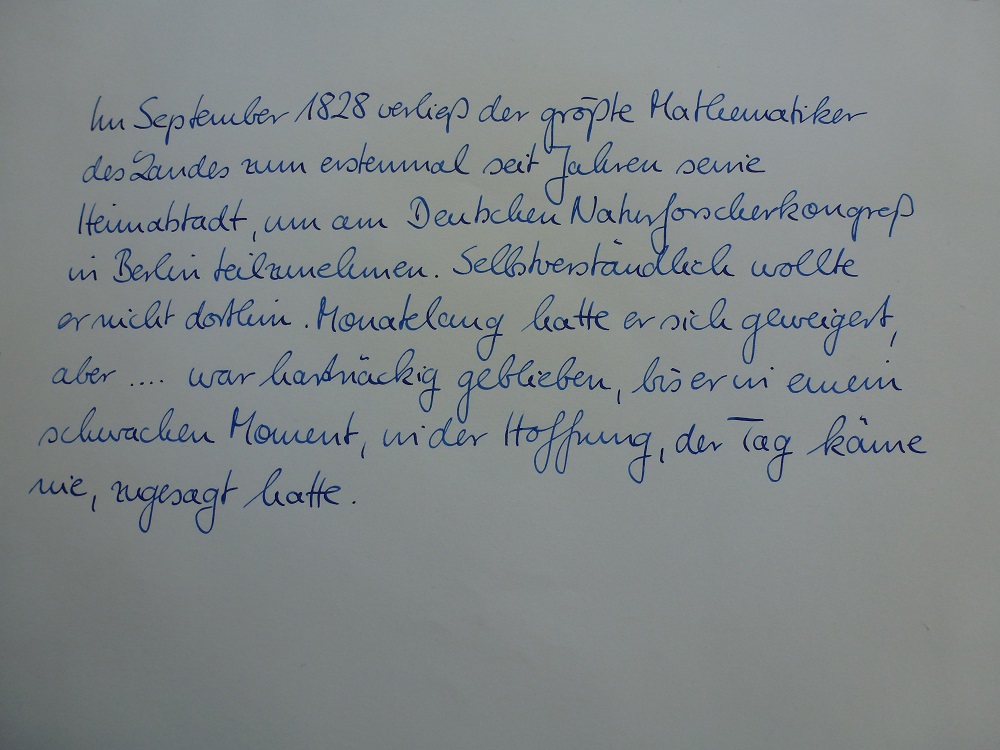 Im September 1828 verließ der größte Mathematiker
des Landes zum erstenmal seit Jahren seine
Heimatstadt, um am Deutschen Naturforscherkongreß
in Berlin teilzunehmen. Selbstverständlich wollte
er nicht dorthin. Monatelang hatte er sich geweigert,
aber .... war hartnäckig geblieben, bis er in einem
schwachen Moment, in der Hoffnung, der Tag käme
nie, zugesagt hatte.